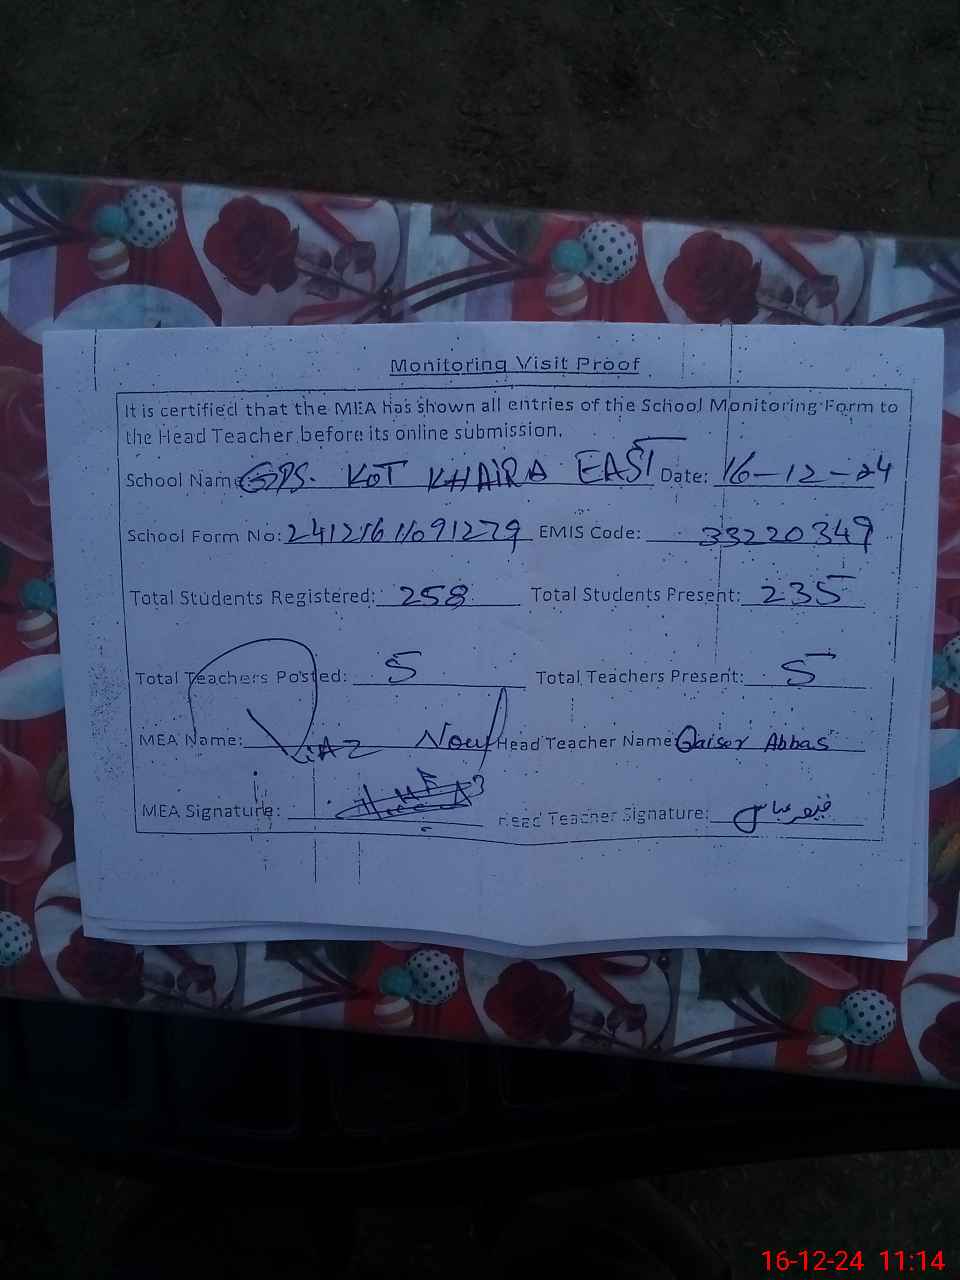 Monitoring Visit Proof
It is certified that the MEA has shown all entries of the School Monitoring Form to
the Head Teacher before its online submission.
School Name GPS. KOT KHAIRA EAST Date: 16-12-24
School Form No: 241216 1691279 EMIS Code: 33220349
Total Students Registered: 258 Total Students Present: 235
Total Teachers Posted: 5 Total Teachers Present: 5
MEA Name: Head Teacher Name Qaiser Abbas
MEA Signature: Head Teacher Signature: قیصر عباس
16-12-24 11:14